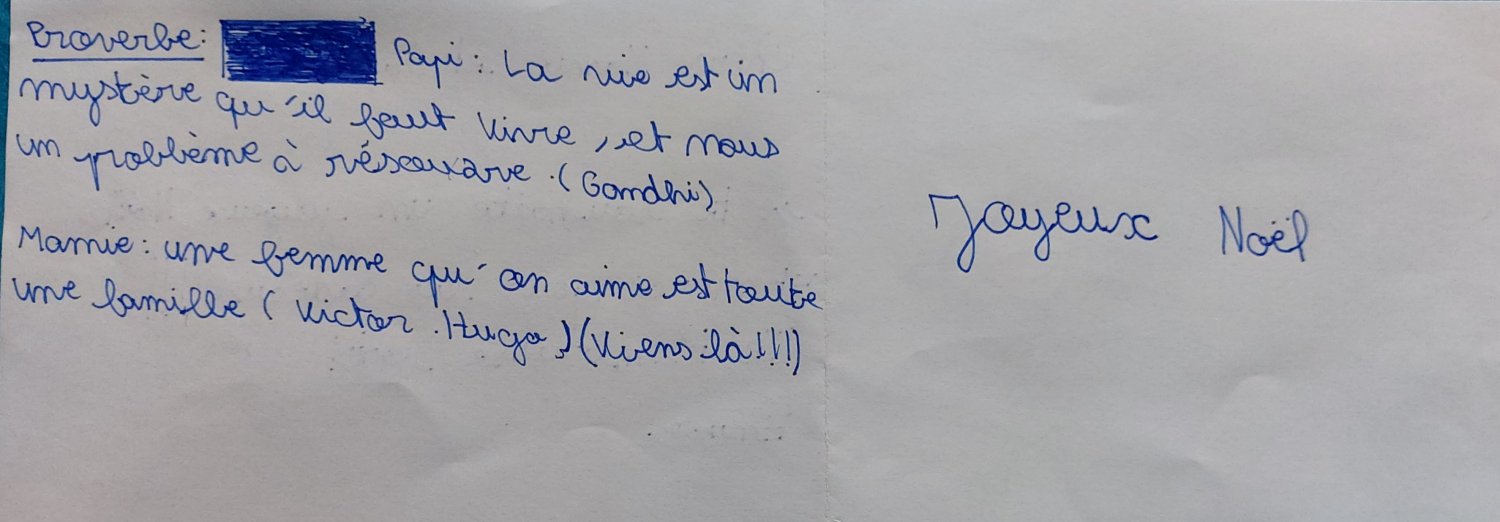 Proverbe: Papi : La vie est un
mystère qu'il faut vivre, et nous
un problème à résoudre. (Gandhi)
Mamie : une femme qu'on aime est toute
une famille (Victor Hugo) (Viens là!!!)
Joyeux Noël